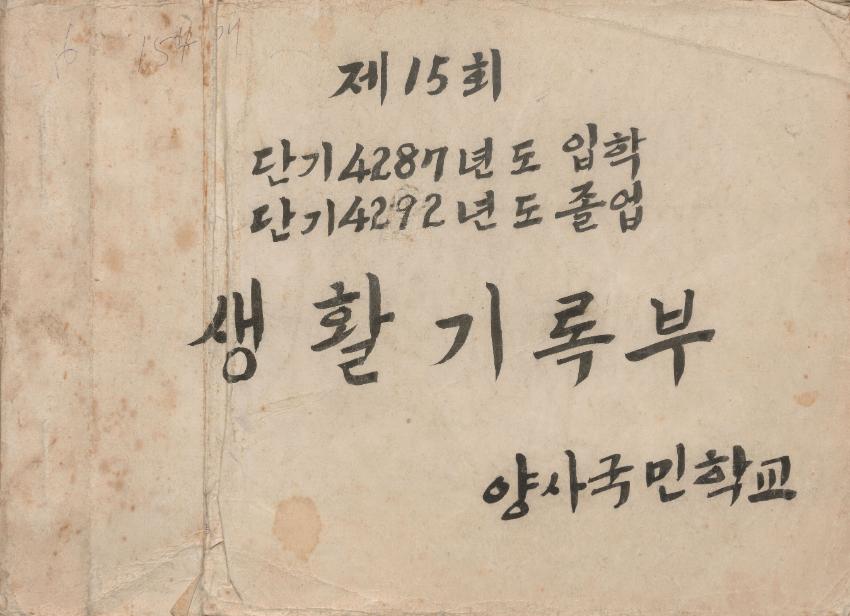 제15회
단기4287년도 입학
단기4292년도 졸업
생활기록부
양사국민학교